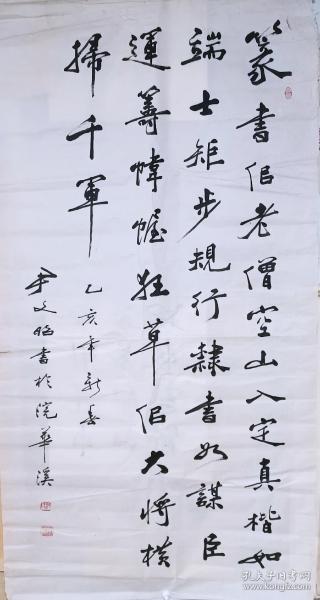 篆書侣老僧空山入定真楷如
端士矩步規行隸書如謀臣
運籌幃幄狂草侣大将横
掃千軍
乙亥年新春
尹文昭書於浣華溪
孔夫子旧书网